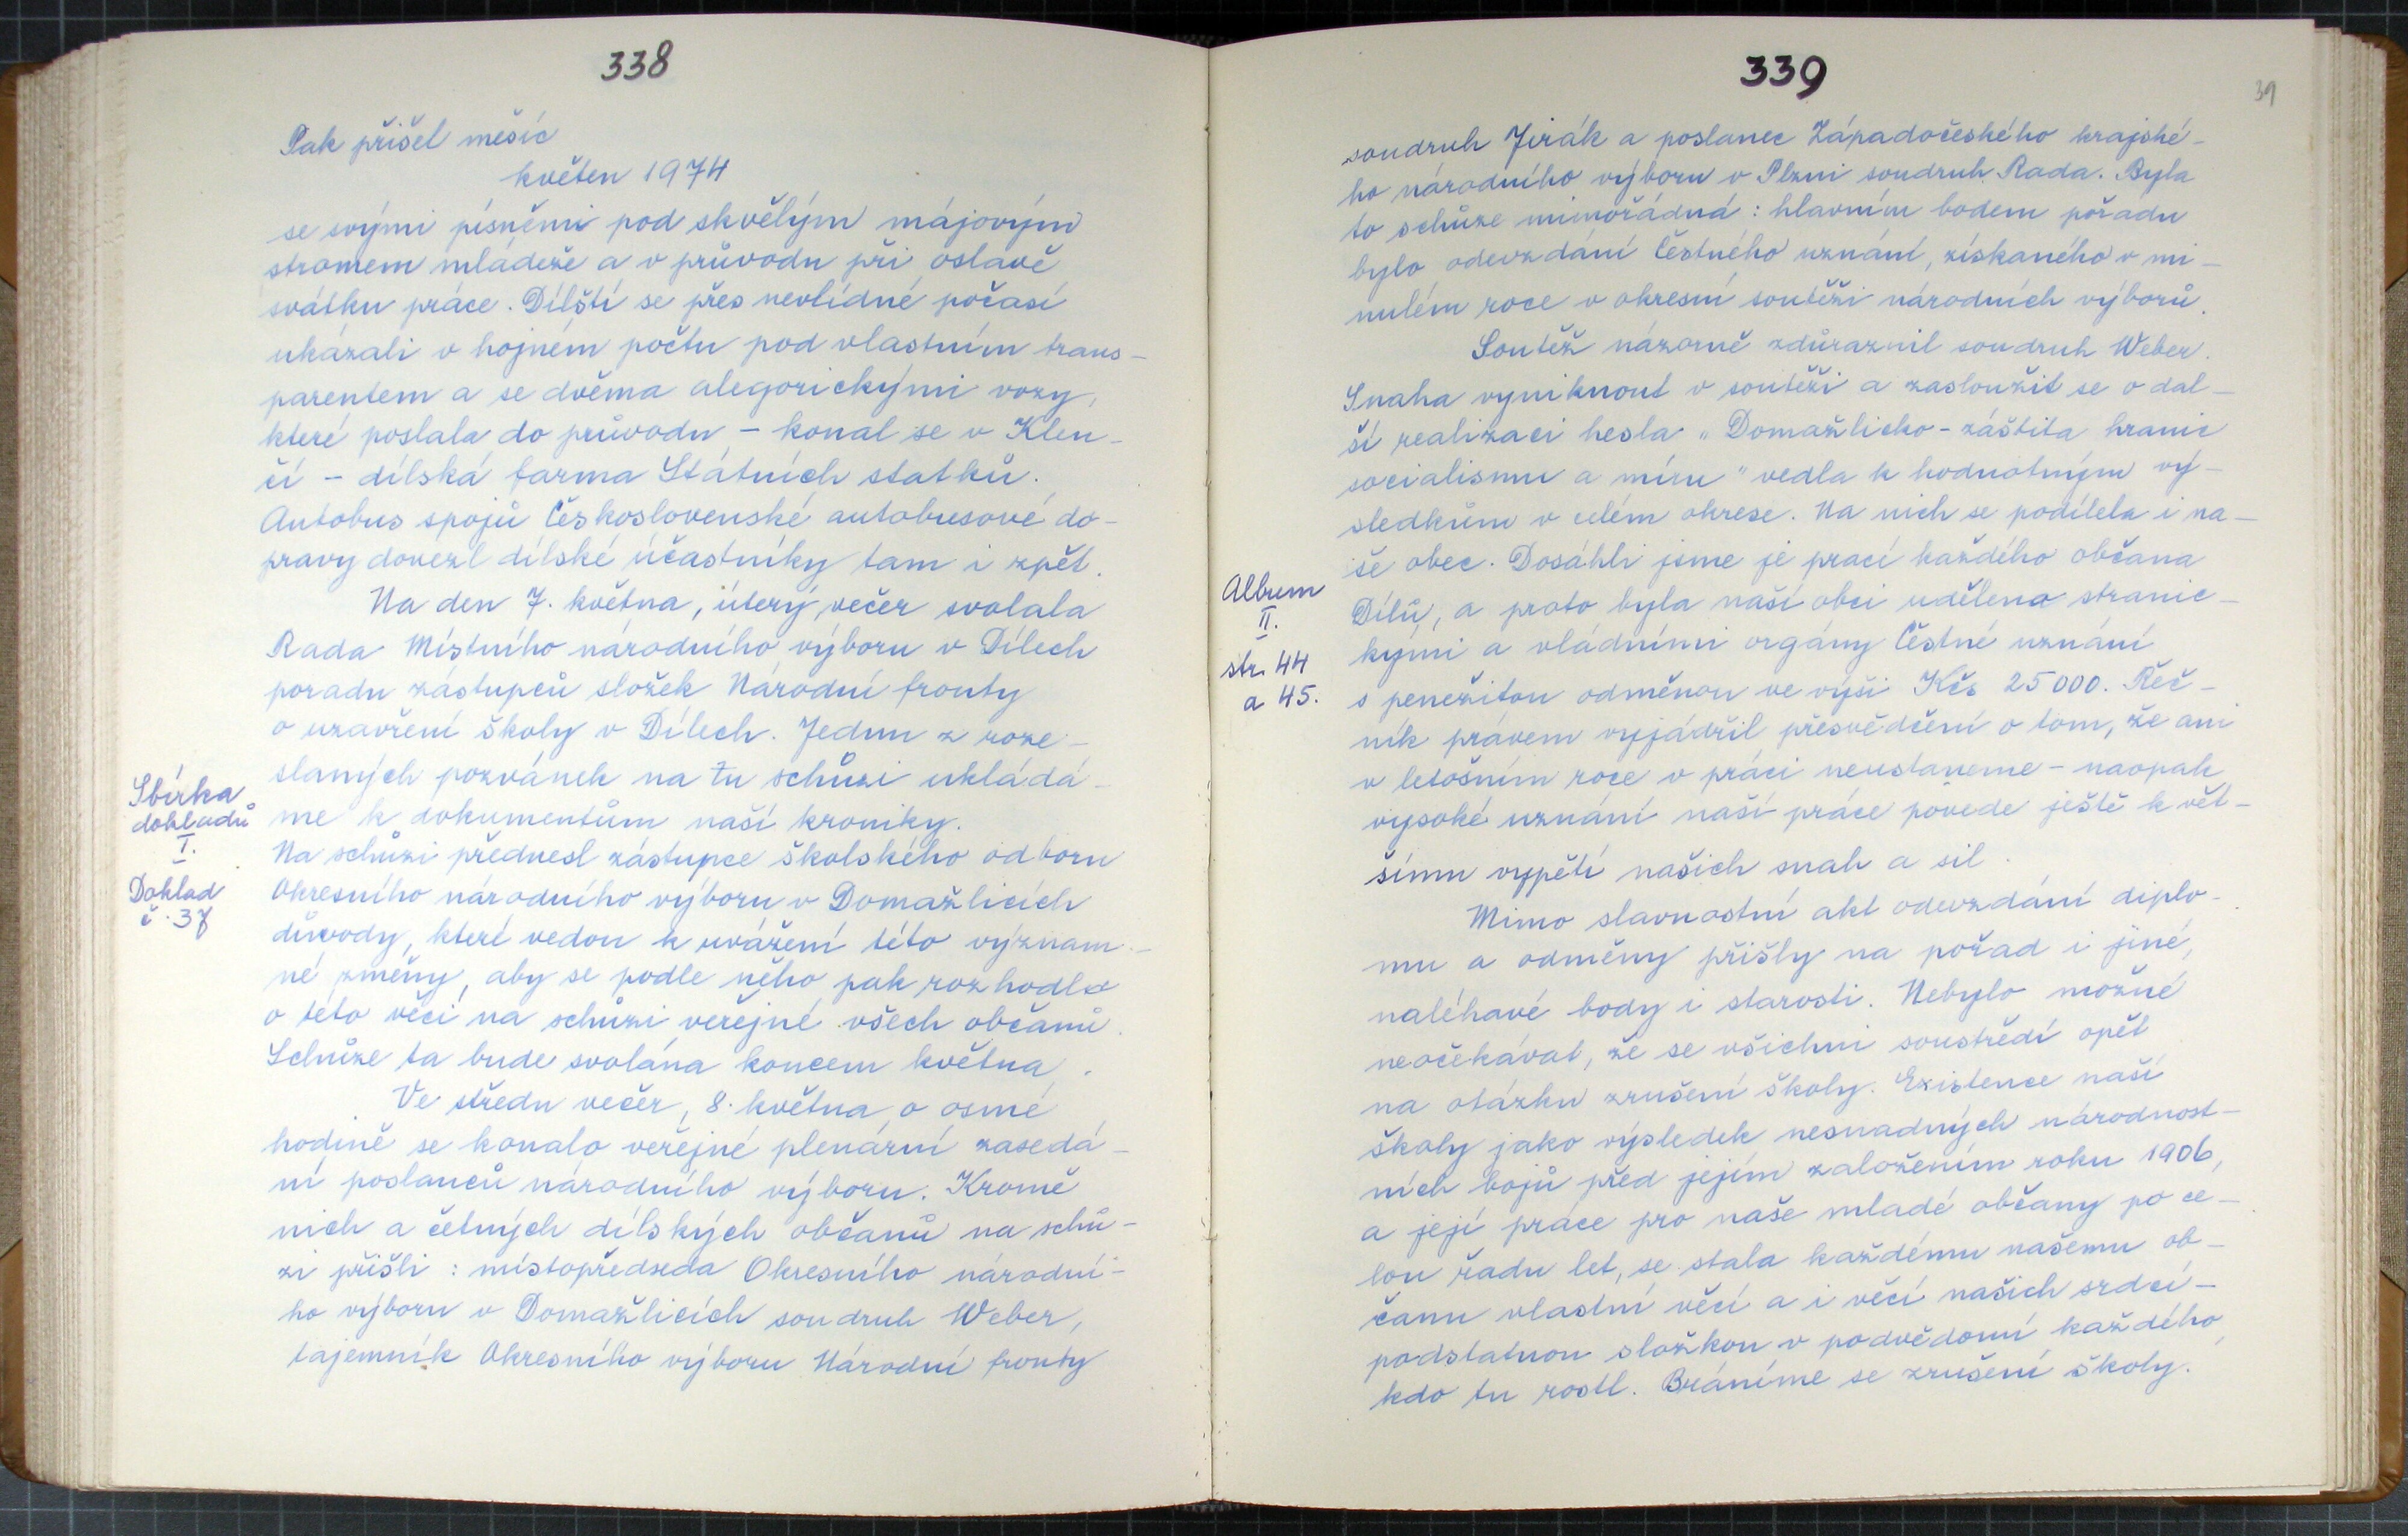 338
Pak přišel měsíc
květen 1974
se svými písněmi pod skvělým májovým
stromem mládeže a v průvodu při oslavě
svátku práce. Dílští se přes nevlídné počasí
ukázali v hojném počtu pod vlastním trans-
parentem a se dvěma alegorickými vozy,
které poslala do průvodu – konal se v Klen-
čí – dílská farma Státních statků.
Autobus spojů Československé autobusové do-
pravy dovezl dílské účastníky tam i zpět.
Na den 7. května, úterý, večer svolala
Rada Místního národního výboru v Dílech
poradu zástupců složek Národní fronty
o uzavření školy v Dílech. Jednu z roze-
slaných pozvánek na tu schůzi ukládá-
me k dokumentům naší kroniky.
Sbírka
dokladů
I.
Doklad
č. 37
Na schůzi přednesl zástupce školského odboru
Okresního národního výboru v Domažlicích
důvody, které vedou k uvážení této význam-
né změny, aby se podle něho pak rozhodlo
o této věci na schůzi veřejné všech občanů.
Schůze ta bude svolána koncem května.
Ve středu večer, 8. května, o osmé
hodině se konalo veřejné plenární zasedá-
ní poslanců národního výboru. Kromě
nich a četných dílských občanů na schů-
zi přišli: místopředseda Okresního národní-
ho výboru v Domažlicích soudruh Weber,
tajemník Okresního výboru Národní fronty
339
39
soudruh Jirák a poslanec Západočeského krajské-
ho národního výboru v Plzni soudruh Rada. Byla
to schůze mimořádná: hlavním bodem pořadu
bylo odevzdání Čestného uznání, získaného v mi-
nulém roce v okresní soutěži národních výborů.
Soutěž názorně zdůraznil soudruh Weber.
Snaha vyniknout v soutěži a zasloužit se o dal-
ší realizaci hesla „Domažlicko - záštita hranic
socialismu a míru" vedla k hodnotným vý-
sledkům v celém okrese. Na nich se podílela i na-
še obec. Dosáhli jsme je prací každého občana
Dílů, a proto byla naší obci udělena stranic-
kými a vládními orgány Čestné uznání
s peněžitou odměnou ve výši Kčs 25 000. Řeč-
Album
II.
str. 44
a 45.
ník právem vyjádřil přesvědčení o tom, že ani
v letošním roce v práci neustaneme – naopak
vysoké uznání naší práce povede ještě k vět-
šímu vypětí našich snah a sil.
Mimo slavnostní akt odevzdání diplo-
mu a odměny přišly na pořad i jiné,
naléhavé body i starosti. Nebylo možné
neočekávat, že se všichni soustředí opět
na otázku zrušení školy. Existence naší
školy jako výsledek nesnadných národnost-
ních bojů před jejím založením roku 1906,
a její práce pro naše mladé občany po ce-
lou řadu let, se stala každému našemu ob-
čanu vlastní věcí a i věcí našich srdcí –
podstatnou složkou v podvědomí každého,
kdo tu rostl. Bráníme se zrušení školy.